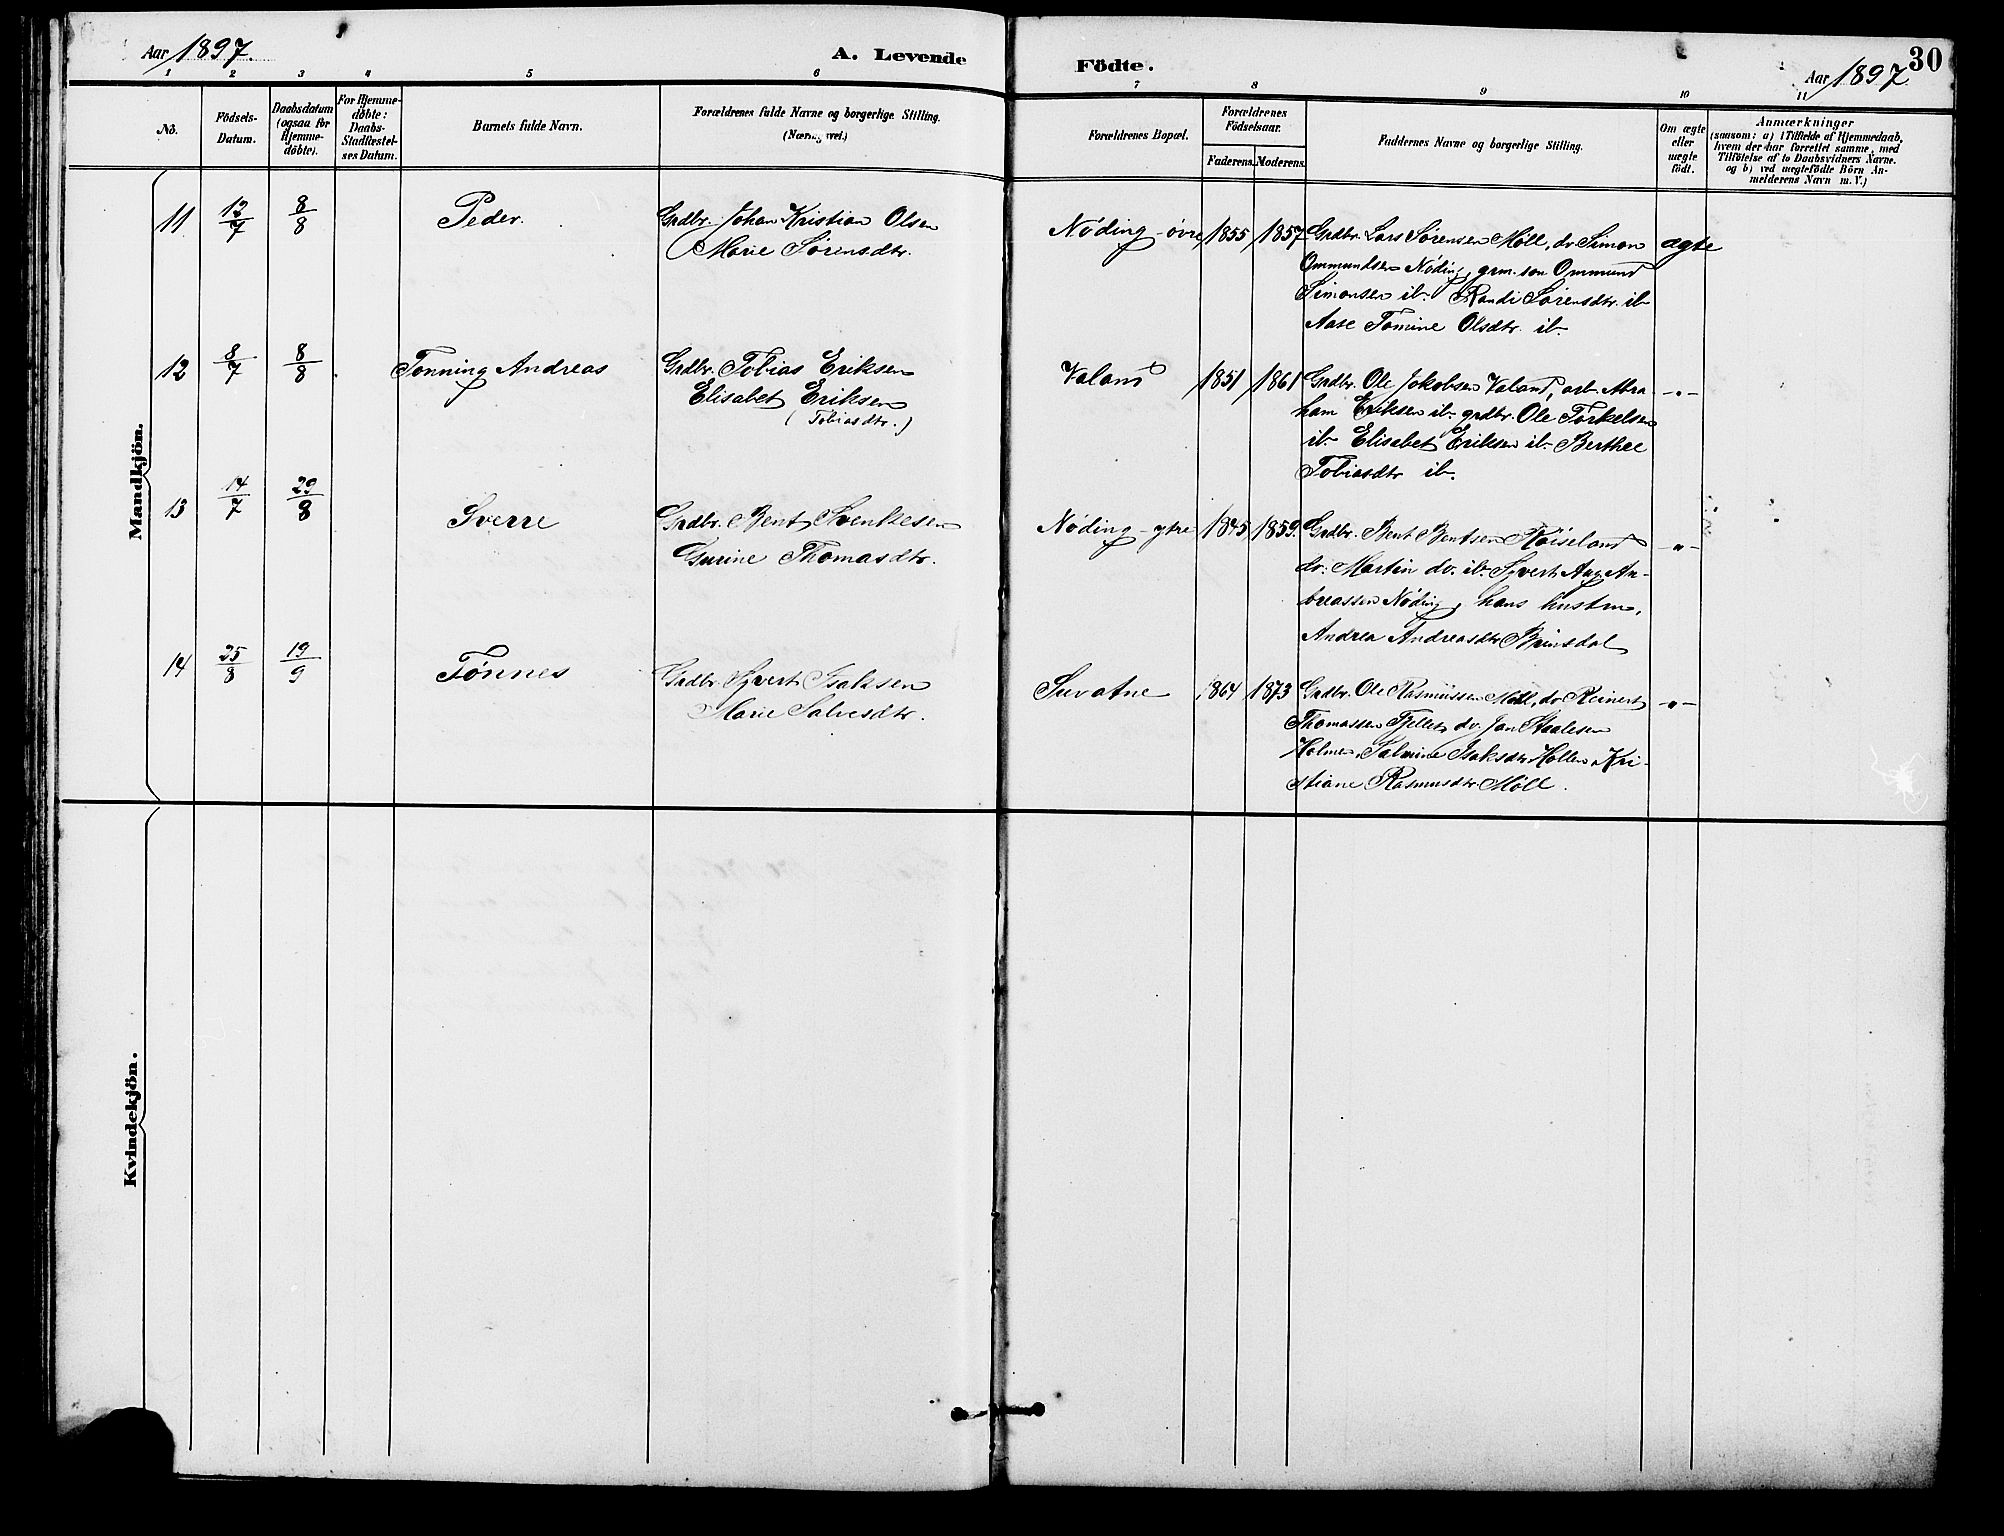 Aar 1897.
A. Levende
Födte.
Aar 1897
30
1 2 3 4 5 6 7 8 9 10 11
No.
Födsels-
Datum.
Daabsdatum
(ogsaa for
Hjemme-
döbte).
For Hjemme-
döbte:
Daabs-
Stadfæstel-
ses Datum.
Barnets fulde Navn.
Forældrenes fulde Navne og borgerlige Stilling.
(Næringsvei.)
Forældrenes Bopæl.
Forældrenes
Födselsaar.
Faderens. Moderens.
Faddernes Navne og borgerlige Stilling.
Om ægte
eller
uægte
födt.
Anmærkninger
(saasom: a) i Tilfælde af Hjemmedaab,
hvem der har forrettet samme, med
Tilföielse af to Daabsvidners Navne.
og b) ved uægtefödte Börn An-
melderens Navn m. V.)
Mandkjön.
11 12/7 8/8 Peder. Grdbr. Johan Kristian Olsen
Marie Sørensdtr.
Nøding-övre 1855 1857 Grdbr. Lars Sørensen Möll, do Simon
Ommundsen Nøding, grm. søn Ommund
Simonsen ib. Randi Sørensdtr. ib
Aase Tomine Olsdtr. ib.
ægte
12 8/7 8/8 Tonning Andreas Grdbr. Tobias Eriksen
Elisabet Eriksen
(Tobiasdtr.)
Valand 1851 1861 Grdbr. Ole Jakobsen Valand, arb. Abra-
ham Eriksen ib. grdbr. Ole Torkelsen
ib. Elisabet Eriksen ib. Berthe
Tobiasdtr ib.
-"-
13 14/7 29/8 Sverre Grdbr. Bent Svenkesen
Gurine Thomasdtr.
Nøding-ytre 1845 1859. Grdbr. Bent Bentsen Røiseland
do: Martin do. ib. Syvert Aug. An-
dreassen Nøding, hans hustru,
Andrea Andreasdtr Brinsdal
-"-
14 25/8 19/9 Tønnes Grdbr. Syvert Isaksen
Marie Salvesdtr.
1864 1873 Grdbr. Ole Rasmussen Möll, do Reinert
Thomassen Fjellet, do. Jan Staalesen
Holmen, Salmine Isaksdtr Hollen, Kri-
stiane Rasmusdtr. Möll.
-"-
Kvindekjön.